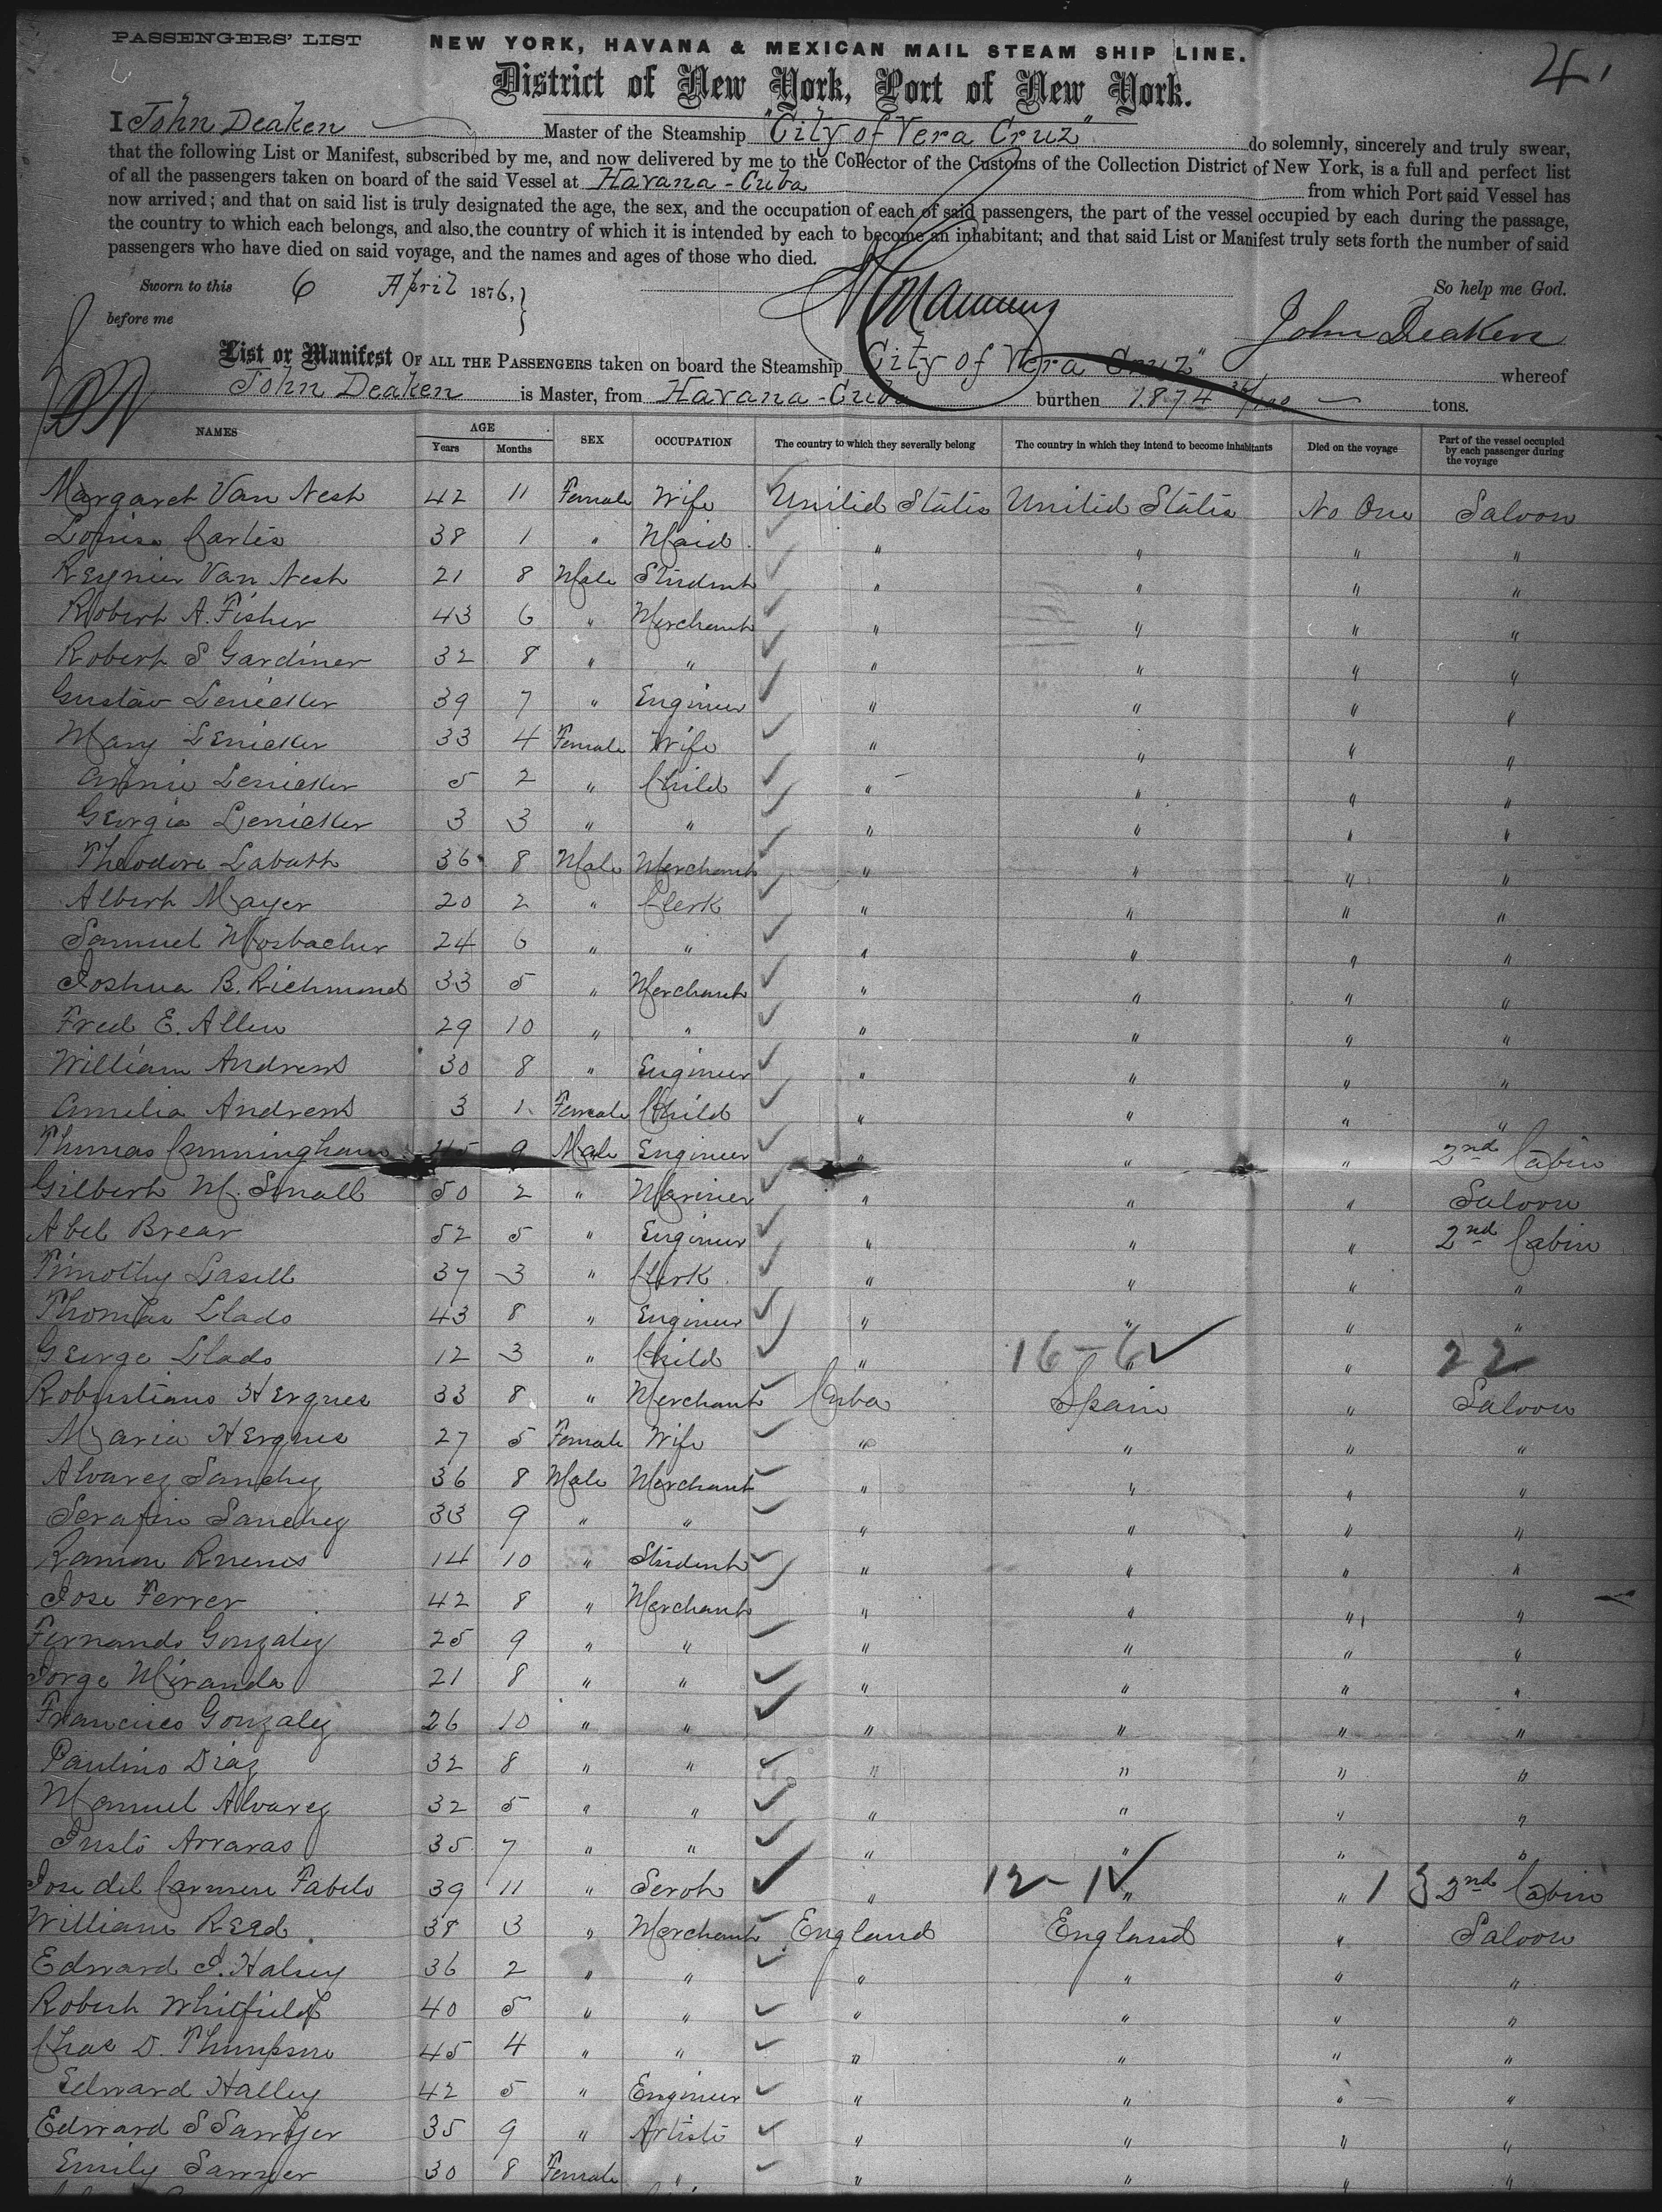 PASSENGERS' LIST
NEW YORK, HAVANA & MEXICAN MAIL STEAM SHIP LINE.
4
District of New York, Port of New York.
I John Deaken Master of the Steamship "City of Vera Cruz" do solemnly, sincerely and truly swear,
that the following List or Manifest, subscribed by me, and now delivered by me to the Collector of the Customs of the Collection District of New York, is a full and perfect list
of all the passengers taken on board of the said Vessel at Havana - Cuba from which Port said Vessel has
now arrived; and that on said list is truly designated the age, the sex, and the occupation of each of said passengers, the part of the vessel occupied by each during the passage,
the country to which each belongs, and also the country of which it is intended by each to become an inhabitant; and that said List or Manifest truly sets forth the number of said
passengers who have died on said voyage, and the names and ages of those who died.
Sworn to this 6 April 1876, } So help me God.
before me John Deaken
List or Manifest OF ALL THE PASSENGERS taken on board the Steamship "City of Vera Cruz" whereof
John Deaken is Master, from Havana - Cuba burthen 1874 tons.
NAMES AGE Years Months SEX OCCUPATION The country to which they severally belong The country in which they intend to become inhabitants Died on the voyage Part of the vessel occupied by each passenger during the voyage
Margaret Van Nest 42 11 Female Wife United States United States No One Saloon
Louisa Carles 38 1 " Maid " " " "
Reynier Van Nest 21 8 Male Student " " " "
Robert A. Fisher 43 6 " Merchant " " " "
Robert S Gardiner 32 8 " " " " " "
Gustav 39 7 " Engineer " " " "
Mary 33 4 Female Wife " " " "
Annie 5 2 " Child " " " "
Georgia 3 3 " " " " " "
Theodore Labatt 36 8 Male Merchant " " " "
Albert Mayer 20 2 " Clerk " " " "
Samuel Mosbacher 24 6 " " " " " "
Joshua B. Richmond 33 5 " Merchant " " " "
Fred E. Allen 29 10 " " " " " "
William Andrews 30 8 " Engineer " " " "
Amelia Andrews 3 1 Female Child " " " "
Thomas Cunningham 45 9 Male Engineer " " " 2nd Cabin
Gilbert M. Small 50 2 " Mariner " " " Saloon
Abel Brear 52 5 " Engineer " " " 2nd Cabin
Timothy Lasell 37 3 " Clerk " " " "
Thomas Llado 43 8 " Engineer " " " "
George Llado 12 3 " Child " 16-6 " " 22
Robustiano Hergues 33 8 " Merchant Cuba Spain " Saloon
Maria Hergues 27 5 Female Wife " " " "
Alvarez Sanchez 36 8 Male Merchant " " " "
Serafin Sanchez 33 9 " " " " " "
Ramon 14 10 " Student " " " "
Jose Ferrer 42 8 " Merchant " " " "
Fernando Gonzalez 25 9 " " " " " "
Jorge Miranda 21 8 " " " " " "
Francisco Gonzalez 26 10 " " " " " "
Paulino Diaz 32 8 " " " " " "
Manuel Alvarez 32 5 " " " " " "
Justo Arraras 35 7 " " " " " "
Jose del Carmen Fabelo 39 11 " " 12-1 " " 13 2nd Cabin
William Read 38 3 " Merchant England England " Saloon
Edward J. Halsey 36 2 " " " " " "
Robert Whitfield 40 5 " " " " " "
Chas D. Thompson 45 4 " " " " " "
Edward Halley 42 5 " Engineer " " " "
Edward S Sawyer 35 9 " Artiste " " " "
Emily Sawyer 30 8 Female " " " " "